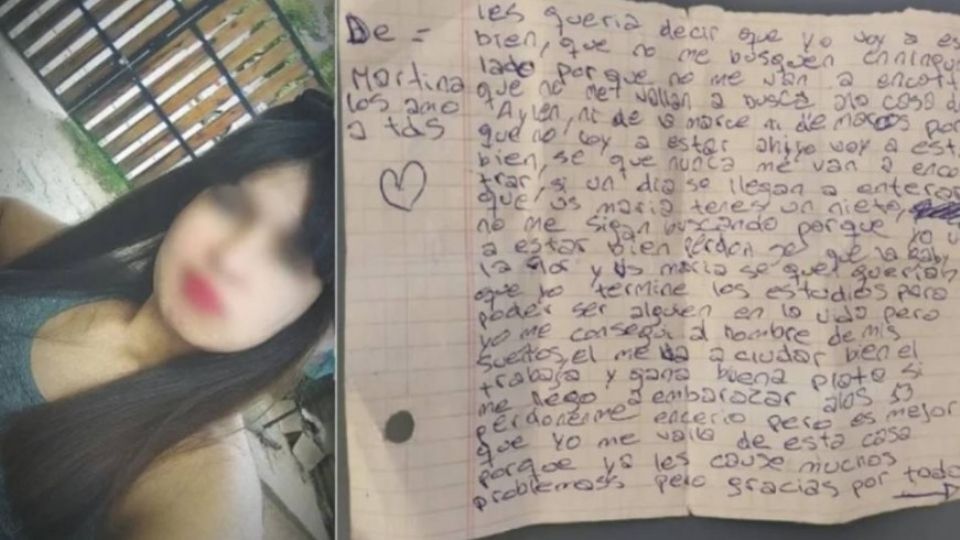 De =
Martina
los amo
a tds
les queria decir que yo voy a es
bien, que no me busquen enningu
lado porque no me van a encot
que no met vallan a busca ala casa d
Aylen, ni de la marce ni de marcos por
que no voy a estar ahi yo voy a esta
bien, se que nunca me van a enco
trar, si un dia se llegan a enterar
que vs maria tenes un nieto,
no me sigan buscando porque yo v
a estar bien perdon se que la baby
la flor y vs maria se que querian
que yo termine los estudios para
poder ser alguien en la vida pero
yo me consegui al hombre de mis
sueños, el me va a ciudar bien el
trabaja y gana buena plata si
me llego a embarazar alos 13
perdonenme encerio pero es mejor
que yo me valla de esta casa
porque ya les cause muchos
problemass pero gracias por todo